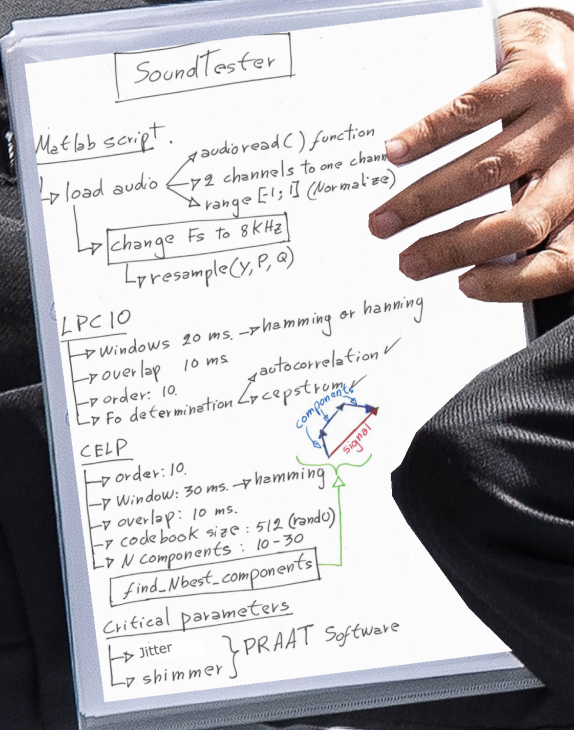 SoundTester
Matlab script.
load audio
audioread() function
2 channels to one chann
range [-1; 1] (Normalize)
change Fs to 8KHz
resample(Y, P, Q)
LPC 10
Windows 20 ms. → hamming or hanning
overlap 10 ms
order: 10.
Fo determination
autocorrelation ✓
cepstrum ✓
components
signal
CELP
order: 10.
Window: 30 ms. → hamming
overlap: 10 ms.
codebook size : 512 (rand())
N components : 10-30
find_Nbest_components
Critical parameters
Jitter
shimmer
PRAAT Software